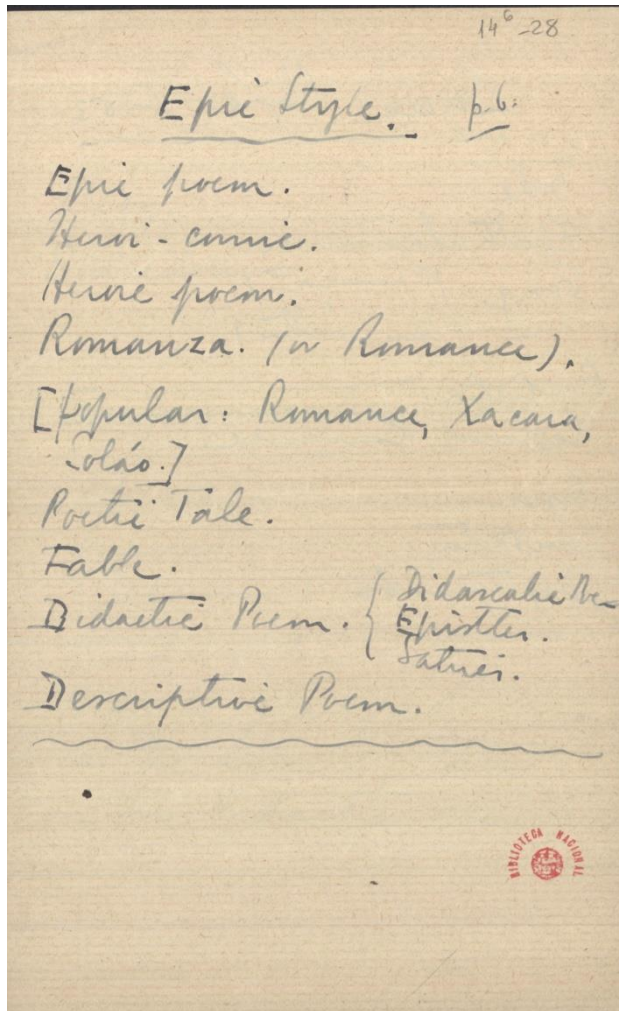 14⁶-28
Epic Style. p. 6:
Epic poem.
Heroi-comic.
Heroic poem.
Romanza. (or Romance).
[popular: Romance, Xacara,
Soláo.]
Poetic Tale.
Fable.
Didactic Poem. { Didascalic
Epistles.
Satires.
Descriptive Poem.
BIBLIOTECA NACIONAL